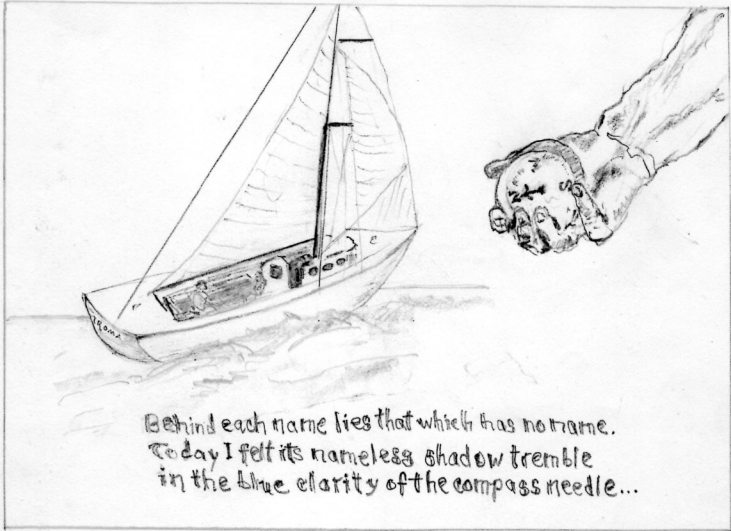 Behind each name lies that which has no name.
Today I felt its nameless shadow tremble
in the blue clarity of the compass needle...